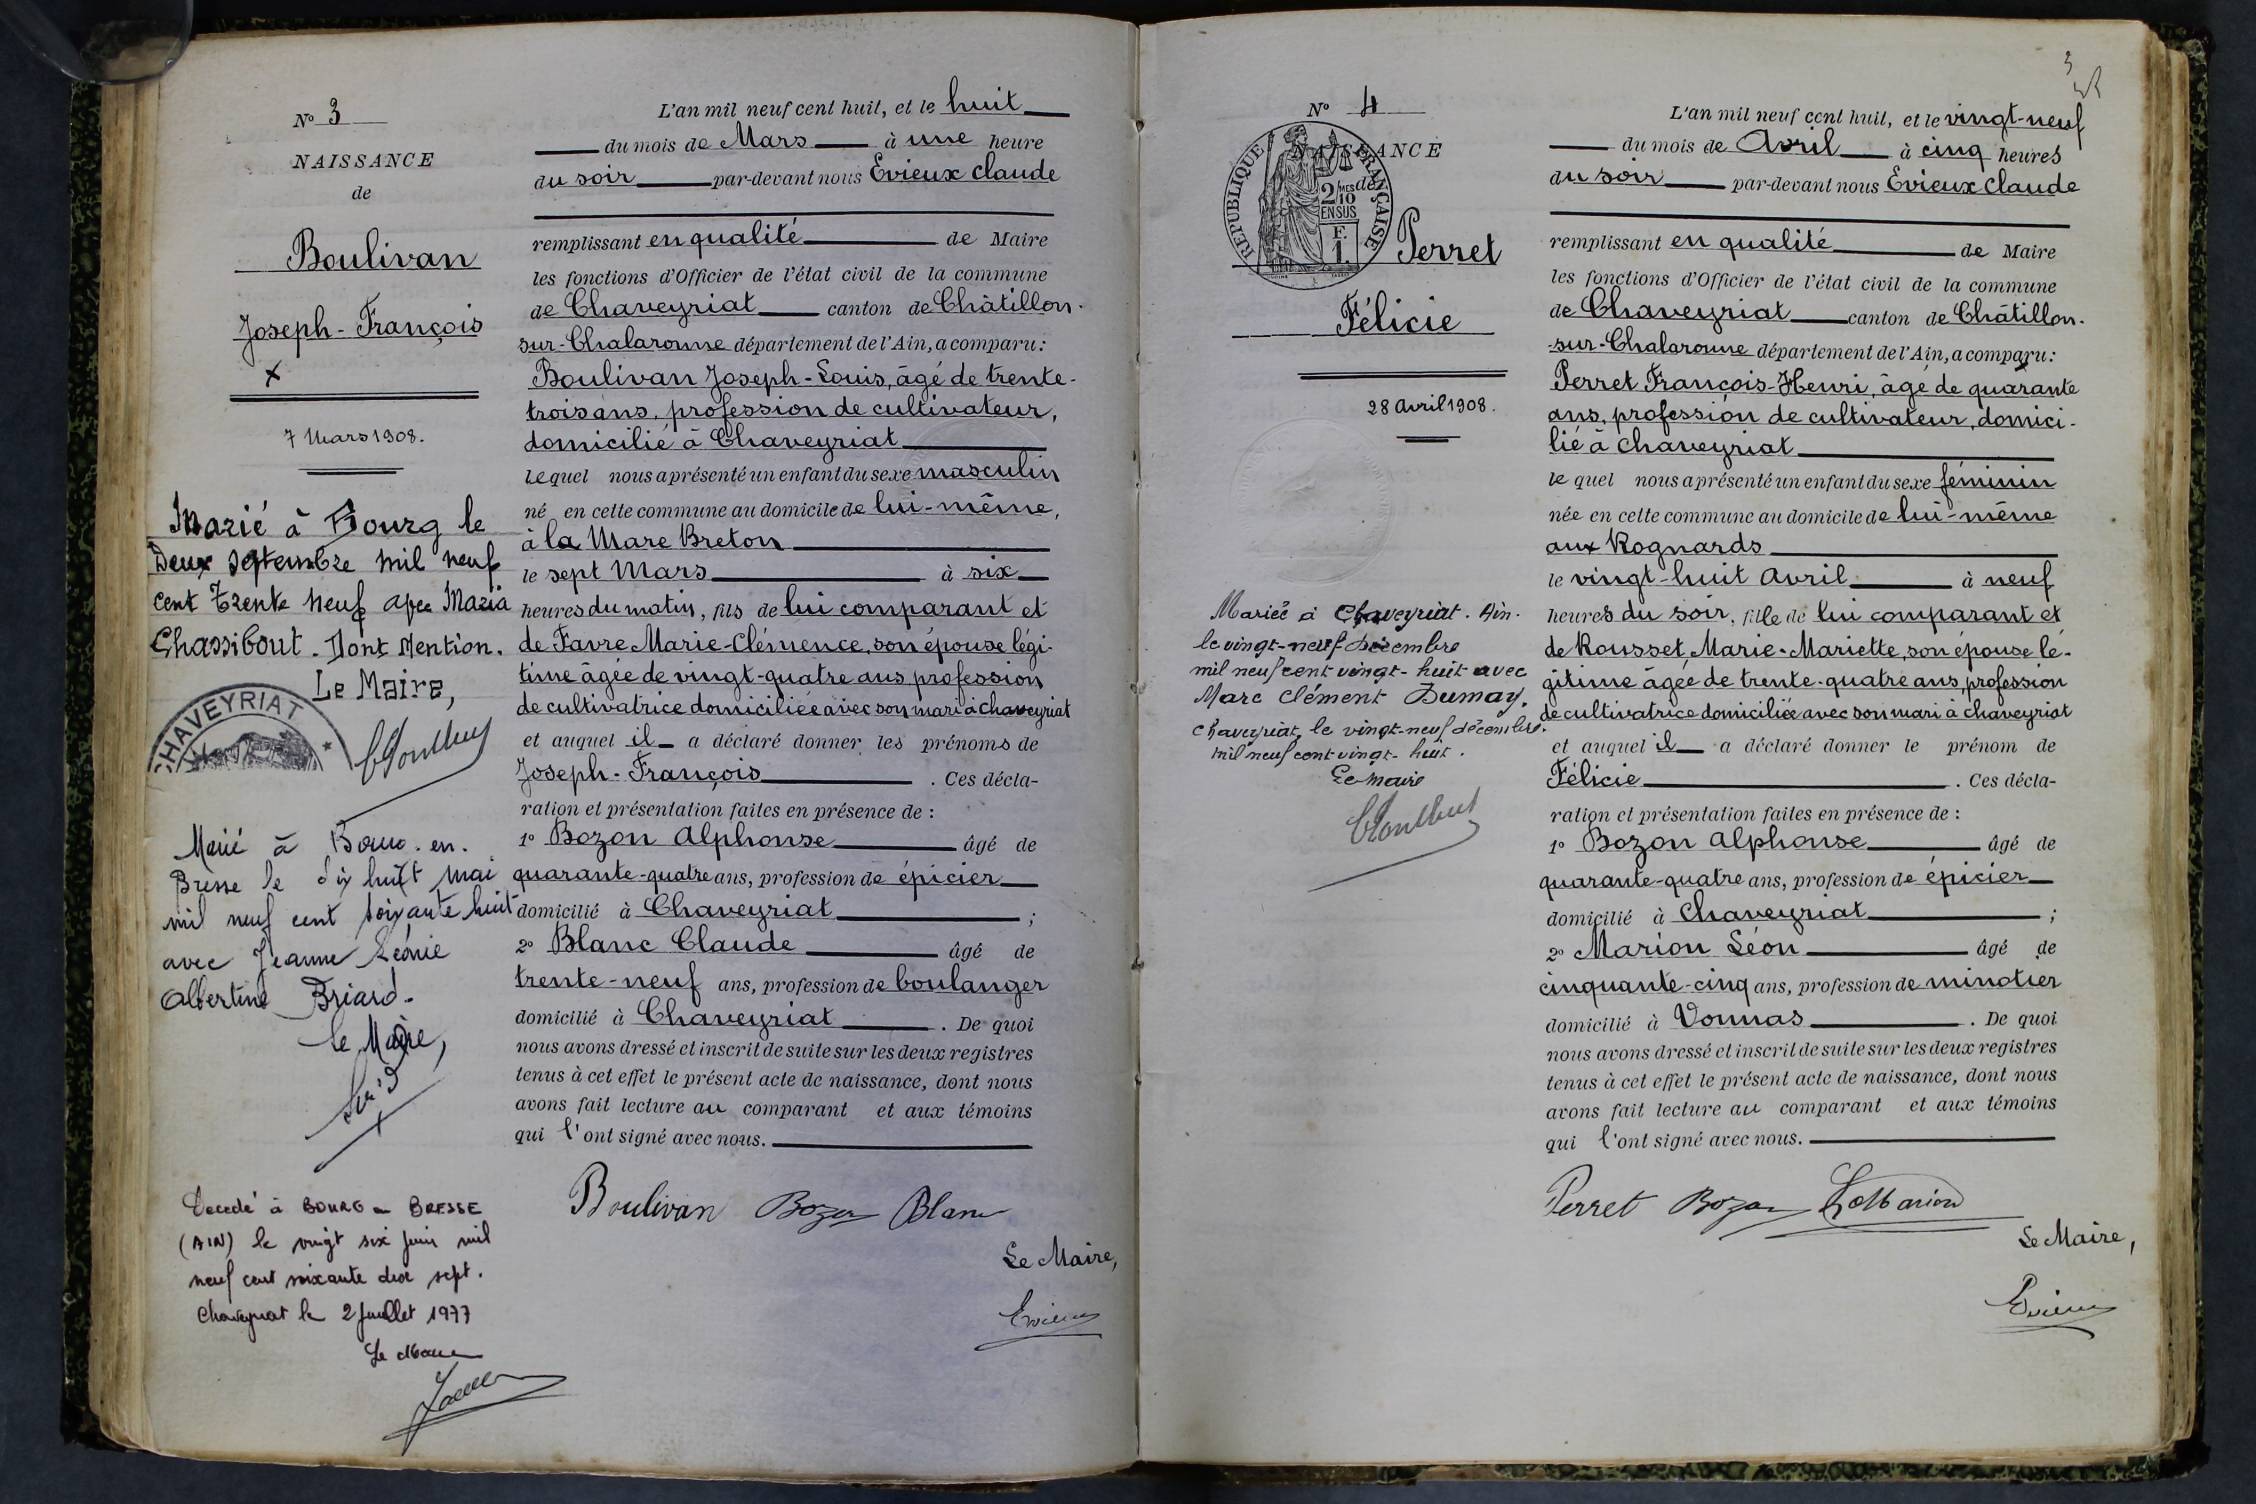 N° 3
NAISSANCE
de
Boulivan
Joseph-François
x
7 Mars 1908.
Marié à Bourg le
Deux septembre mil neuf
cent trente neuf avec Maria
Chassibout. Dont Mention.
Le Maire,
CHAVEYRIAT
Marié à Bourg-en-
Bresse le dix huit mai
mil neuf cent soixante huit
avec Jeanne Léonie
Albertine Briard.
le Maire,
Décédé à BOURG en BRESSE
(AIN) le vingt six juin mil
neuf cent soixante dix sept.
Chaveyriat le 2 Juillet 1977
Le Maire
L'an mil neuf cent huit, et le huit
du mois de Mars à une heure
du soir par-devant nous Evieux Claude
remplissant en qualité de Maire
les fonctions d'Officier de l'état civil de la commune
de Chaveyriat canton de Châtillon-
sur-Chalaronne département de l'Ain, a comparu:
Boulivan Joseph-Louis, âgé de trente-
trois ans, profession de cultivateur,
domicilié à Chaveyriat
lequel nous a présenté un enfant du sexe masculin
né en cette commune au domicile de lui-même,
à la Mare Breton
le sept Mars à six
heures du matin, fils de lui comparant et
de Favre Marie-Clémence, son épouse légi-
time âgée de vingt-quatre ans profession
de cultivatrice domiciliée avec son mari à chaveyriat
et auquel il a déclaré donner les prénoms de
Joseph-François. Ces décla-
ration et présentation faites en présence de :
1° Bozon Alphonse âgé de
quarante-quatre ans, profession de épicier
domicilié à Chaveyriat ;
2° Blanc Claude âgé de
trente-neuf ans, profession de boulanger
domicilié à Chaveyriat. De quoi
nous avons dressé et inscrit de suite sur les deux registres
tenus à cet effet le présent acte de naissance, dont nous
avons fait lecture au comparant et aux témoins
qui l'ont signé avec nous.
Boulivan Bozon Blanc
Le Maire,
Evieux
3
N° 4
NAISSANCE
de
RÉPUBLIQUE FRANÇAISE
2/10 MES
EN SUS
F.
1.
Perret
Félicie
28 Avril 1908.
Mariée à Chaveyriat. Ain.
le vingt-neuf Décembre
mil neuf cent vingt-huit avec
Marc Clément Dumay.
Chaveyriat, le vingt-neuf décembre
mil neuf cent vingt-huit.
Le maire
L'an mil neuf cent huit, et le vingt-neuf
du mois de Avril à cinq heures
du soir par-devant nous Evieux Claude
remplissant en qualité de Maire
les fonctions d'Officier de l'état civil de la commune
de Chaveyriat canton de Châtillon-
-sur-Chalaronne département de l'Ain, a comparu:
Perret François-Henri, âgé de quarante
ans, profession de cultivateur, domici-
lié à Chaveyriat
le quel nous a présenté un enfant du sexe féminin
née en cette commune au domicile de lui-même
aux Rognards
le vingt-huit Avril à neuf
heures du soir, fille de lui comparant et
de Rousset Marie-Mariette, son épouse lé-
gitime âgée de trente-quatre ans, profession
de cultivatrice domiciliée avec son mari à chaveyriat
et auquel il a déclaré donner le prénom de
Félicie. Ces décla-
ration et présentation faites en présence de :
1° Bozon Alphonse âgé de
quarante-quatre ans, profession de épicier
domicilié à Chaveyriat ;
2° Marion Léon âgé de
cinquante-cinq ans, profession de minotier
domicilié à Vonnas. De quoi
nous avons dressé et inscrit de suite sur les deux registres
tenus à cet effet le présent acte de naissance, dont nous
avons fait lecture au comparant et aux témoins
qui l'ont signé avec nous.
Perret Bozon L Marion
Le Maire,
Evieux